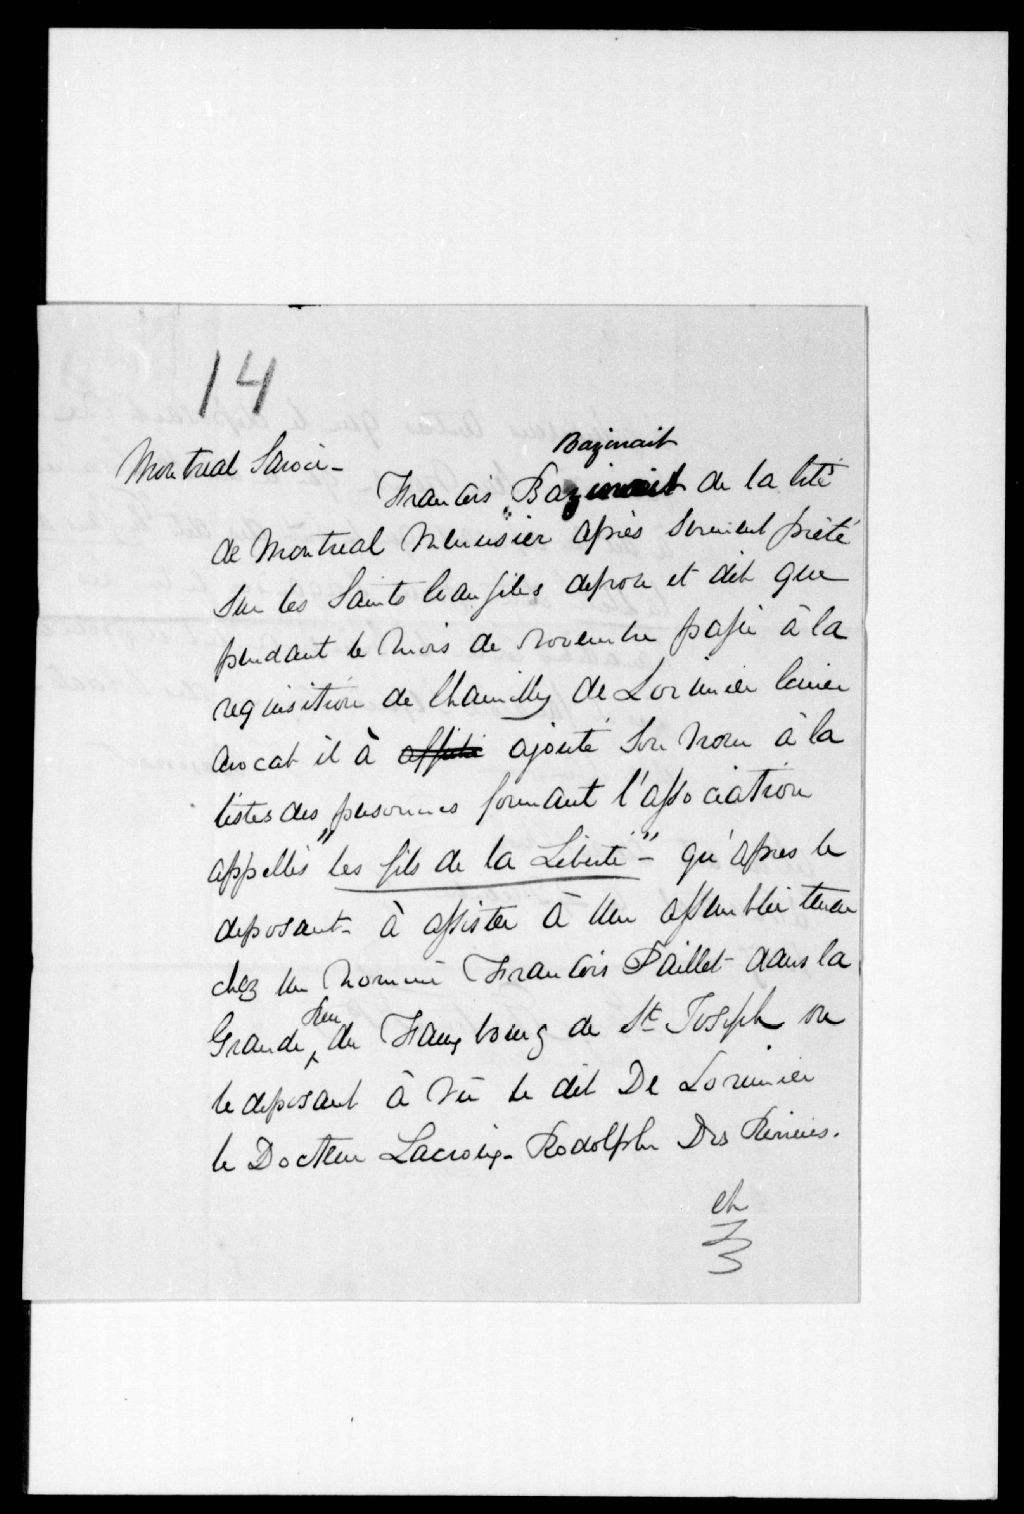 14
Montreal Savoir -
Bazinait
Francois Bazinait de la Cité
de Montreal Menuisier après serment prété
Sur les Saints Evangiles depose et dit que
pendant le mois de novembre passé à la
requisition de Chamilly de Lorimier Ecuier
avocat il à ajouté Son Nom à la
listes des personnes formant l'association
appellés "les fils de la Liberté" - qu'apres le
deposant - à assister à une assemblée tenue
chez un nommé Francois Paillet dans la
Grande Rue du Fauxbourg de St. Joseph ou
le deposant à vû le dit De Lorimier
le Docteur Lacroix - Rodolphe Des Rivieres.
et